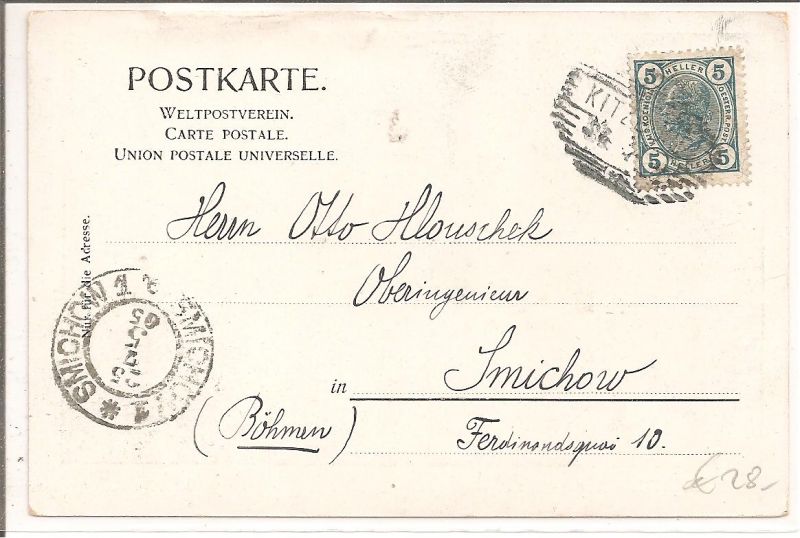 POSTKARTE.
WELTPOSTVEREIN.
CARTE POSTALE.
UNION POSTALE UNIVERSELLE.
KITZ
5 HELLER 5
OESTERR. POST
5 HELLER 5
Nur für die Adresse.
Herrn Otto Hlouschek
Oberingenieur
in Smichow
(Böhmen) Ferdinandsquai 10.
SMICHOW 1 SMICHOW 1
€ 28.-